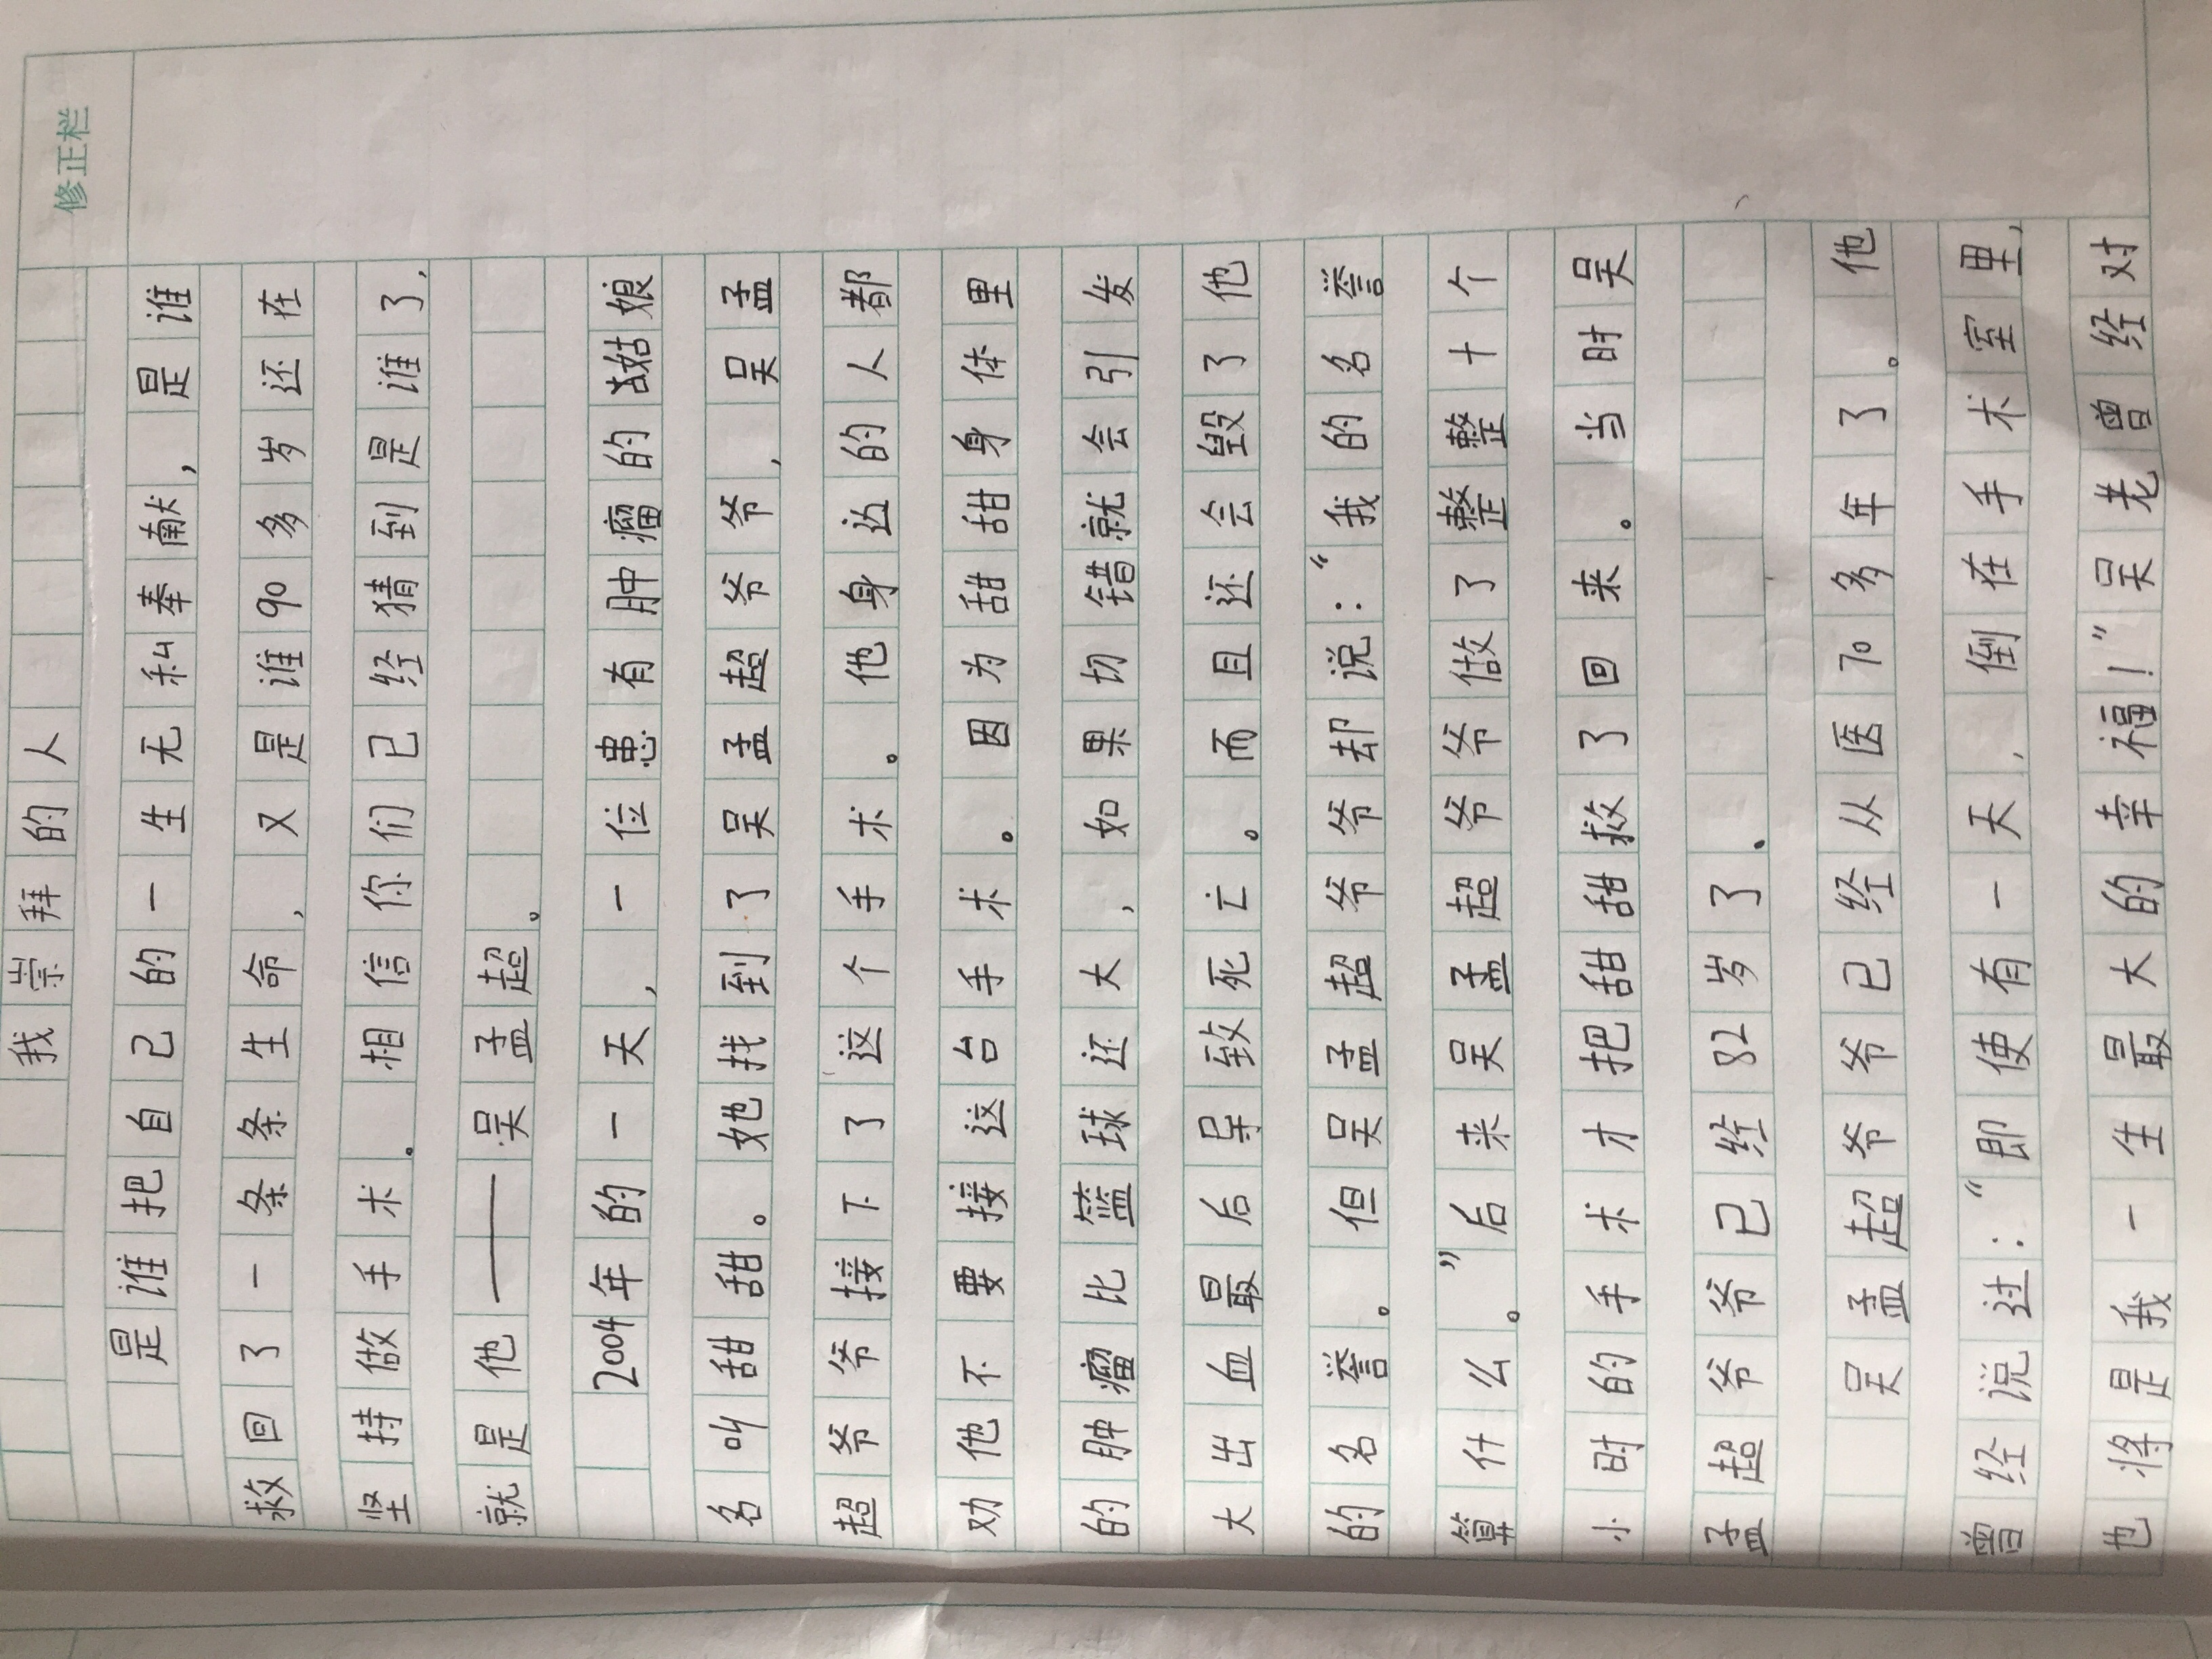 修正栏
我崇拜的人
是谁把自己的一生无私奉献，是谁
救回了一条条生命，又是谁90多岁还在
坚持做手术。相信你们已经猜到是谁了，
就是他——吴孟超。
2004年的一天，一位患有肿瘤的姑娘
名叫甜甜。她找到了吴孟超爷爷，吴孟
超爷爷接下了这个手术。他身边的人都
劝他不要接这台手术。因为甜甜身体里
的肿瘤比篮球还大，如果切错就会引发
大出血最后导致死亡。而且还会毁了他
的名誉。但吴孟超爷爷却说：“我的名誉
算什么。”后来吴孟超爷爷做了整整十个
小时的手术才把甜甜救了回来。当时吴
孟超爷爷已经82岁了。
吴孟超爷爷已经从医70多年了。他
曾经说过：“即使有一天，倒在手术室里，
也将是我一生最大的幸福！”吴老曾经对